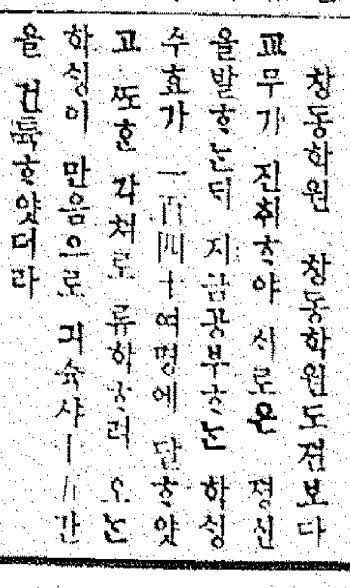 창동학원 창동학원도 점보다
교무가 진취ᄒᆞ야 ᄉᆡ로운 졍신
을 발ᄒᆞᄂᆞᆫᄃᆡ 지금 공부ᄒᆞᄂᆞᆫ 학ᄉᆡᆼ
수효가 一百四十여명에 단ᄒᆞ얏
고 ᄯᅩᄒᆞᆫ 각쳐로 류학ᄒᆞ려 오ᄂᆞᆫ
학ᄉᆡᆼ이 만음으로 긔슉샤 간
을 건튝ᄒᆞ얏더라